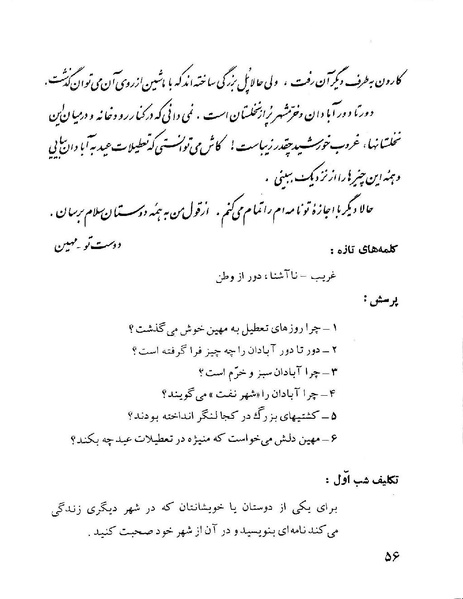 کارون به طرف دیگر آن رفت ، ولی حالا پل بزرگی ساخته اند که با ماشین از روی آن می توان گذشت.
دور تا دور آبادان و خرمشهر پر از نخلستان است . نمی دانی که در کنار رودخانه و در میان این
نخلستانها، غروب خورشید چقدر زیباست! کاش می توانستی که تعطیلات عید به آبادان بیایی
و همهٔ این چیزها را از نزدیک ببینی .
حالا دیگر با اجازهٔ تو نامه ام را تمام می کنم . از قول من به همه دوستان سلام برسان .
دوست تو - مهین
کلمه‌های تازه :
غریب – ناآشنا، دور از وطن
پرسش :
۱ – چرا روزهای تعطیل به مهین خوش می گذشت؟
۲ – دور تا دور آبادان را چه چیز فرا گرفته است؟
۳ – چرا آبادان سبز و خرّم است؟
۴ – چرا آبادان را «شهر نفت» می گویند؟
۵ – کشتیهای بزرگ در کجا لنگر انداخته بودند؟
۶ – مهین دلش می خواست که منیژه در تعطیلات عید چه بکند؟
تکلیف شب اوّل :
برای یکی از دوستان یا خویشانتان که در شهر دیگری زندگی
می کند نامه ای بنویسید و در آن از شهر خود صحبت کنید .
۵۶